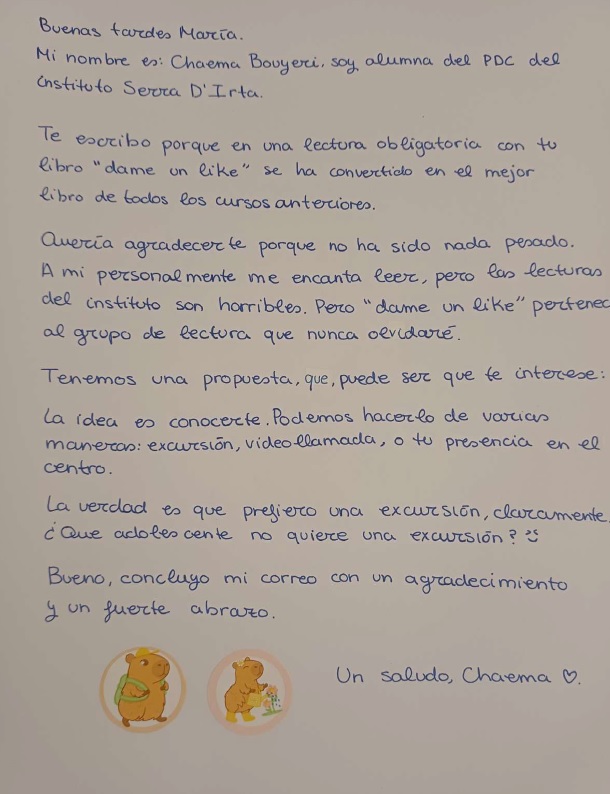 Buenas tardes María.
Mi nombre es: Chaema Bouyeri, soy alumna del PDC del
instituto Serra D'Irta.
Te escribo porque en una lectura obligatoria con tu
libro "dame un like" se ha convertido en el mejor
libro de todos los cursos anteriores.
Quería agradecerte porque no ha sido nada pesado.
A mi personalmente me encanta leer, pero las lecturas
del instituto son horribles. Pero "dame un like" pertenec
al grupo de lectura que nunca olvidaré.
Tenemos una propuesta, que, puede ser que te interese:
La idea es conocerte. Podemos hacerlo de varias
maneras: excursión, videollamada, o tu presencia en el
centro.
La verdad es que prefiero una excursión, claramente.
¿Que adolescente no quiere una excursión? ü
Bueno, concluyo mi correo con un agradecimiento
y un fuerte abrazo.
Un saludo, Chaema ♡.